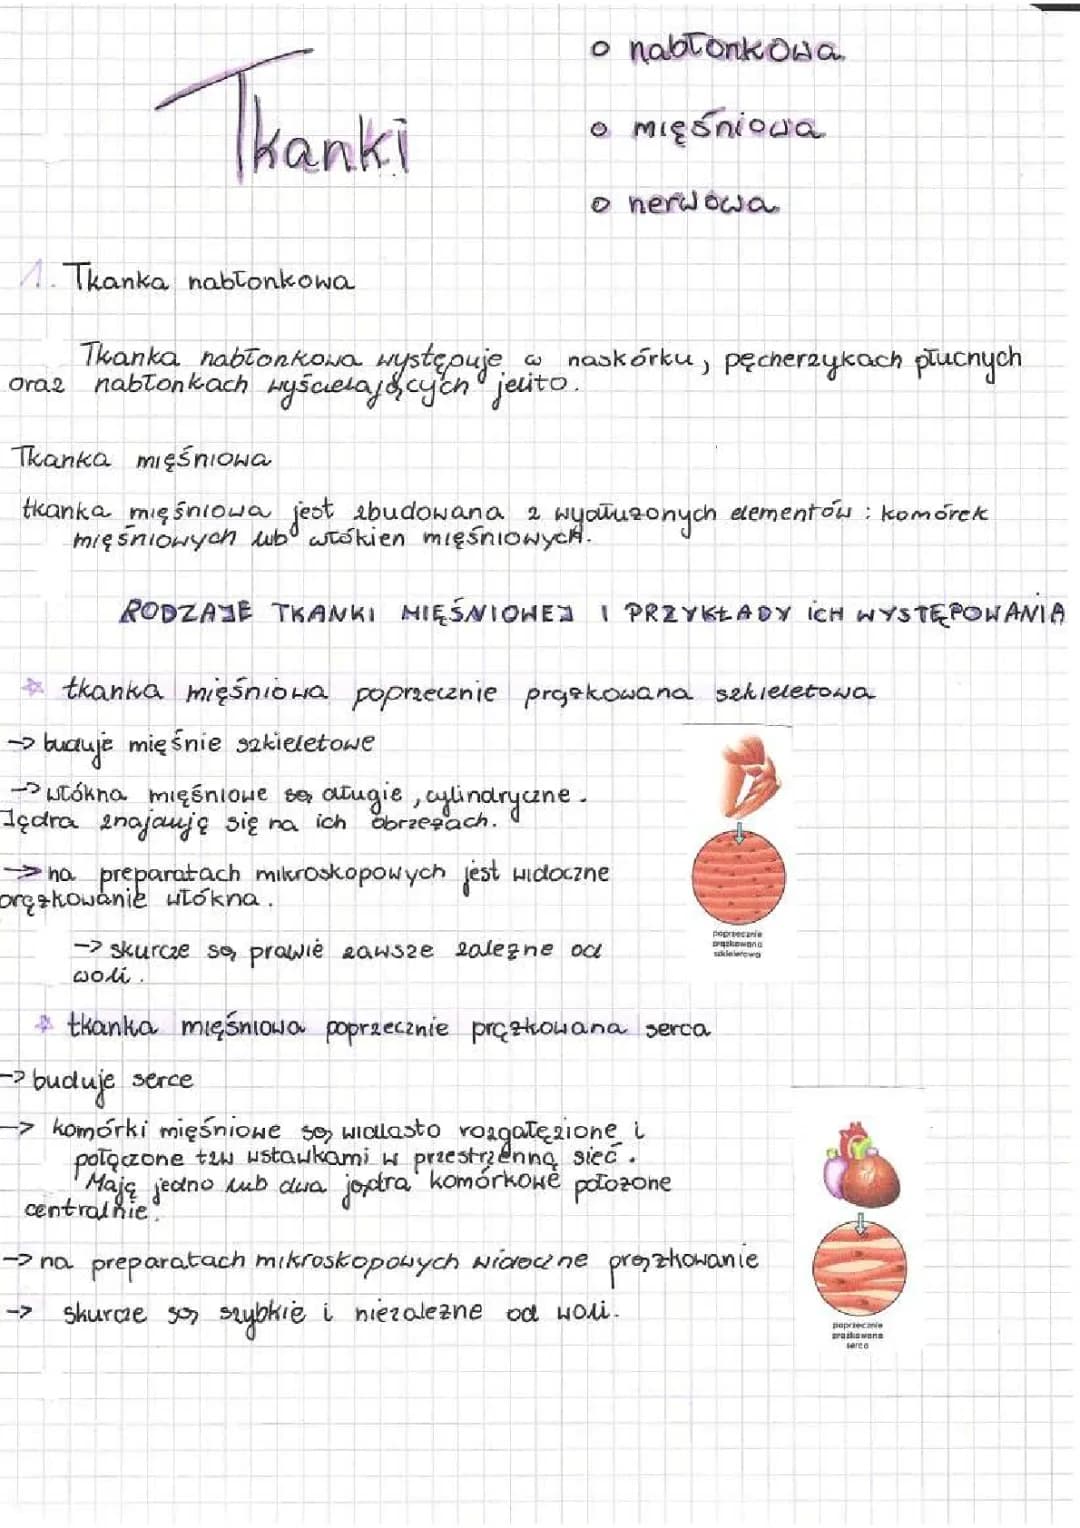 Tkanki
o nabłonkowa
o mięśniowa
o nerwowa
1. Tkanka nabłonkowa
Tkanka nabłonkowa występuje w naskórku, pęcherzykach płucnych
oraz nabłonkach wyścielających jelito.
Tkanka mięśniowa
tkanka mięśniowa jest zbudowana z wydłużonych elementów: komórek
mięśniowych lub włókien mięśniowych.
RODZAJE TKANKI MIĘŚNIOWEJ I PRZYKŁADY ICH WYSTĘPOWANIA
☆ tkanka mięśniowa poprzecznie prążkowana szkieletowa
-> buduje mięśnie szkieletowe
-> włókna mięśniowe są długie, cylindryczne.
Jądra znajdują się na ich obrzeżach.
-> na preparatach mikroskopowych jest widoczne
prążkowanie włókna.
-> skurcze są prawie zawsze zależne od
woli.
poprzecznie
prążkowana
szkieletowa
☆ tkanka mięśniowa poprzecznie prążkowana serca
-> buduje serce
-> komórki mięśniowe są widlasto rozgałęzione i
połączone tzw wstawkami w przestrzenną sieć.
Mają jedno lub dwa jądra komórkowe położone
centralnie.
-> na preparatach mikroskopowych widoczne prążkowanie
-> skurcze są szybkie i niezależne od woli.
poprzecznie
prążkowana
serca